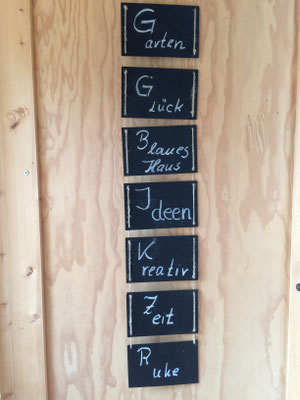 Garten
Glück
Blaues
Haus
Ideen
Kreativ
Zeit
Ruhe